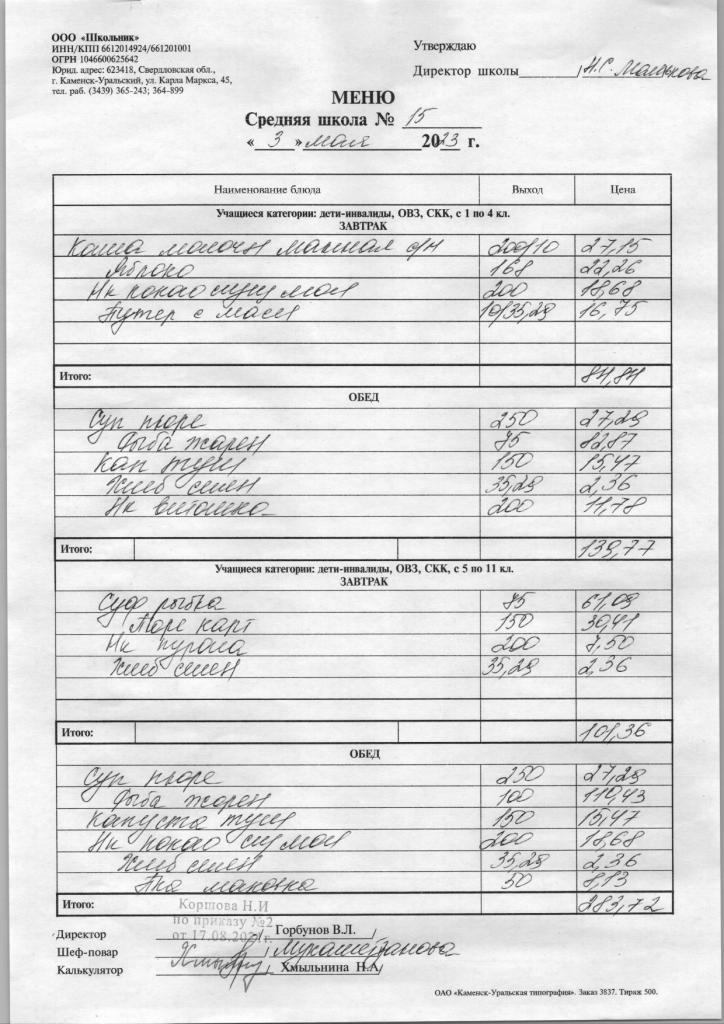 ООО «Школьник»
ИНН/КПП 6612014924/661201001
ОГРН 1046600625642
Юрид. адрес: 623418, Свердловская обл.,
г. Каменск-Уральский, ул. Карла Маркса, 45,
тел. раб. (3439) 365-243; 364-899
Утверждаю
Директор школы /Н.С.
МЕНЮ
Средняя школа № 15
« 3 » мая 2023 г.
Наименование блюда Выход Цена
Учащиеся категории: дети-инвалиды, ОВЗ, СКК, с 1 по 4 кл.
ЗАВТРАК
Каша молочн манная с/м 200/10 27,15
Яблоко 168 22,26
Нк какао сгущ мол 200 18,68
Бутер с масл 10/35,29 16,75
Итого: 84,84
ОБЕД
Суп пюре 250 27,29
Рыба жарен 75 82,87
Кап туш 150 15,47
Хлеб смен 35,29 2,36
Нк витошка 200 11,78
Итого: 139,77
Учащиеся категории: дети-инвалиды, ОВЗ, СКК, с 5 по 11 кл.
ЗАВТРАК
Суф рыбка 75 61,09
Пюре карт 150 30,41
Нк 200 7,50
Хлеб смен 35,29 2,36
Итого: 101,36
ОБЕД
Суп пюре 250 27,29
Рыба жарен 100 110,43
Капуста туш 150 15,47
Нк какао сгу мол 200 18,68
Хлеб смен 35,29 2,36
маковка 50 8,13
Итого: 283,72
Коршова Н.И
по приказу №2
от 17.08.20 г.
Директор / Горбунов В.Л.
Шеф-повар /
Калькулятор / Хмыльнина Н.А/
ОАО «Каменск-Уральская типография». Заказ 3837. Тираж 500.